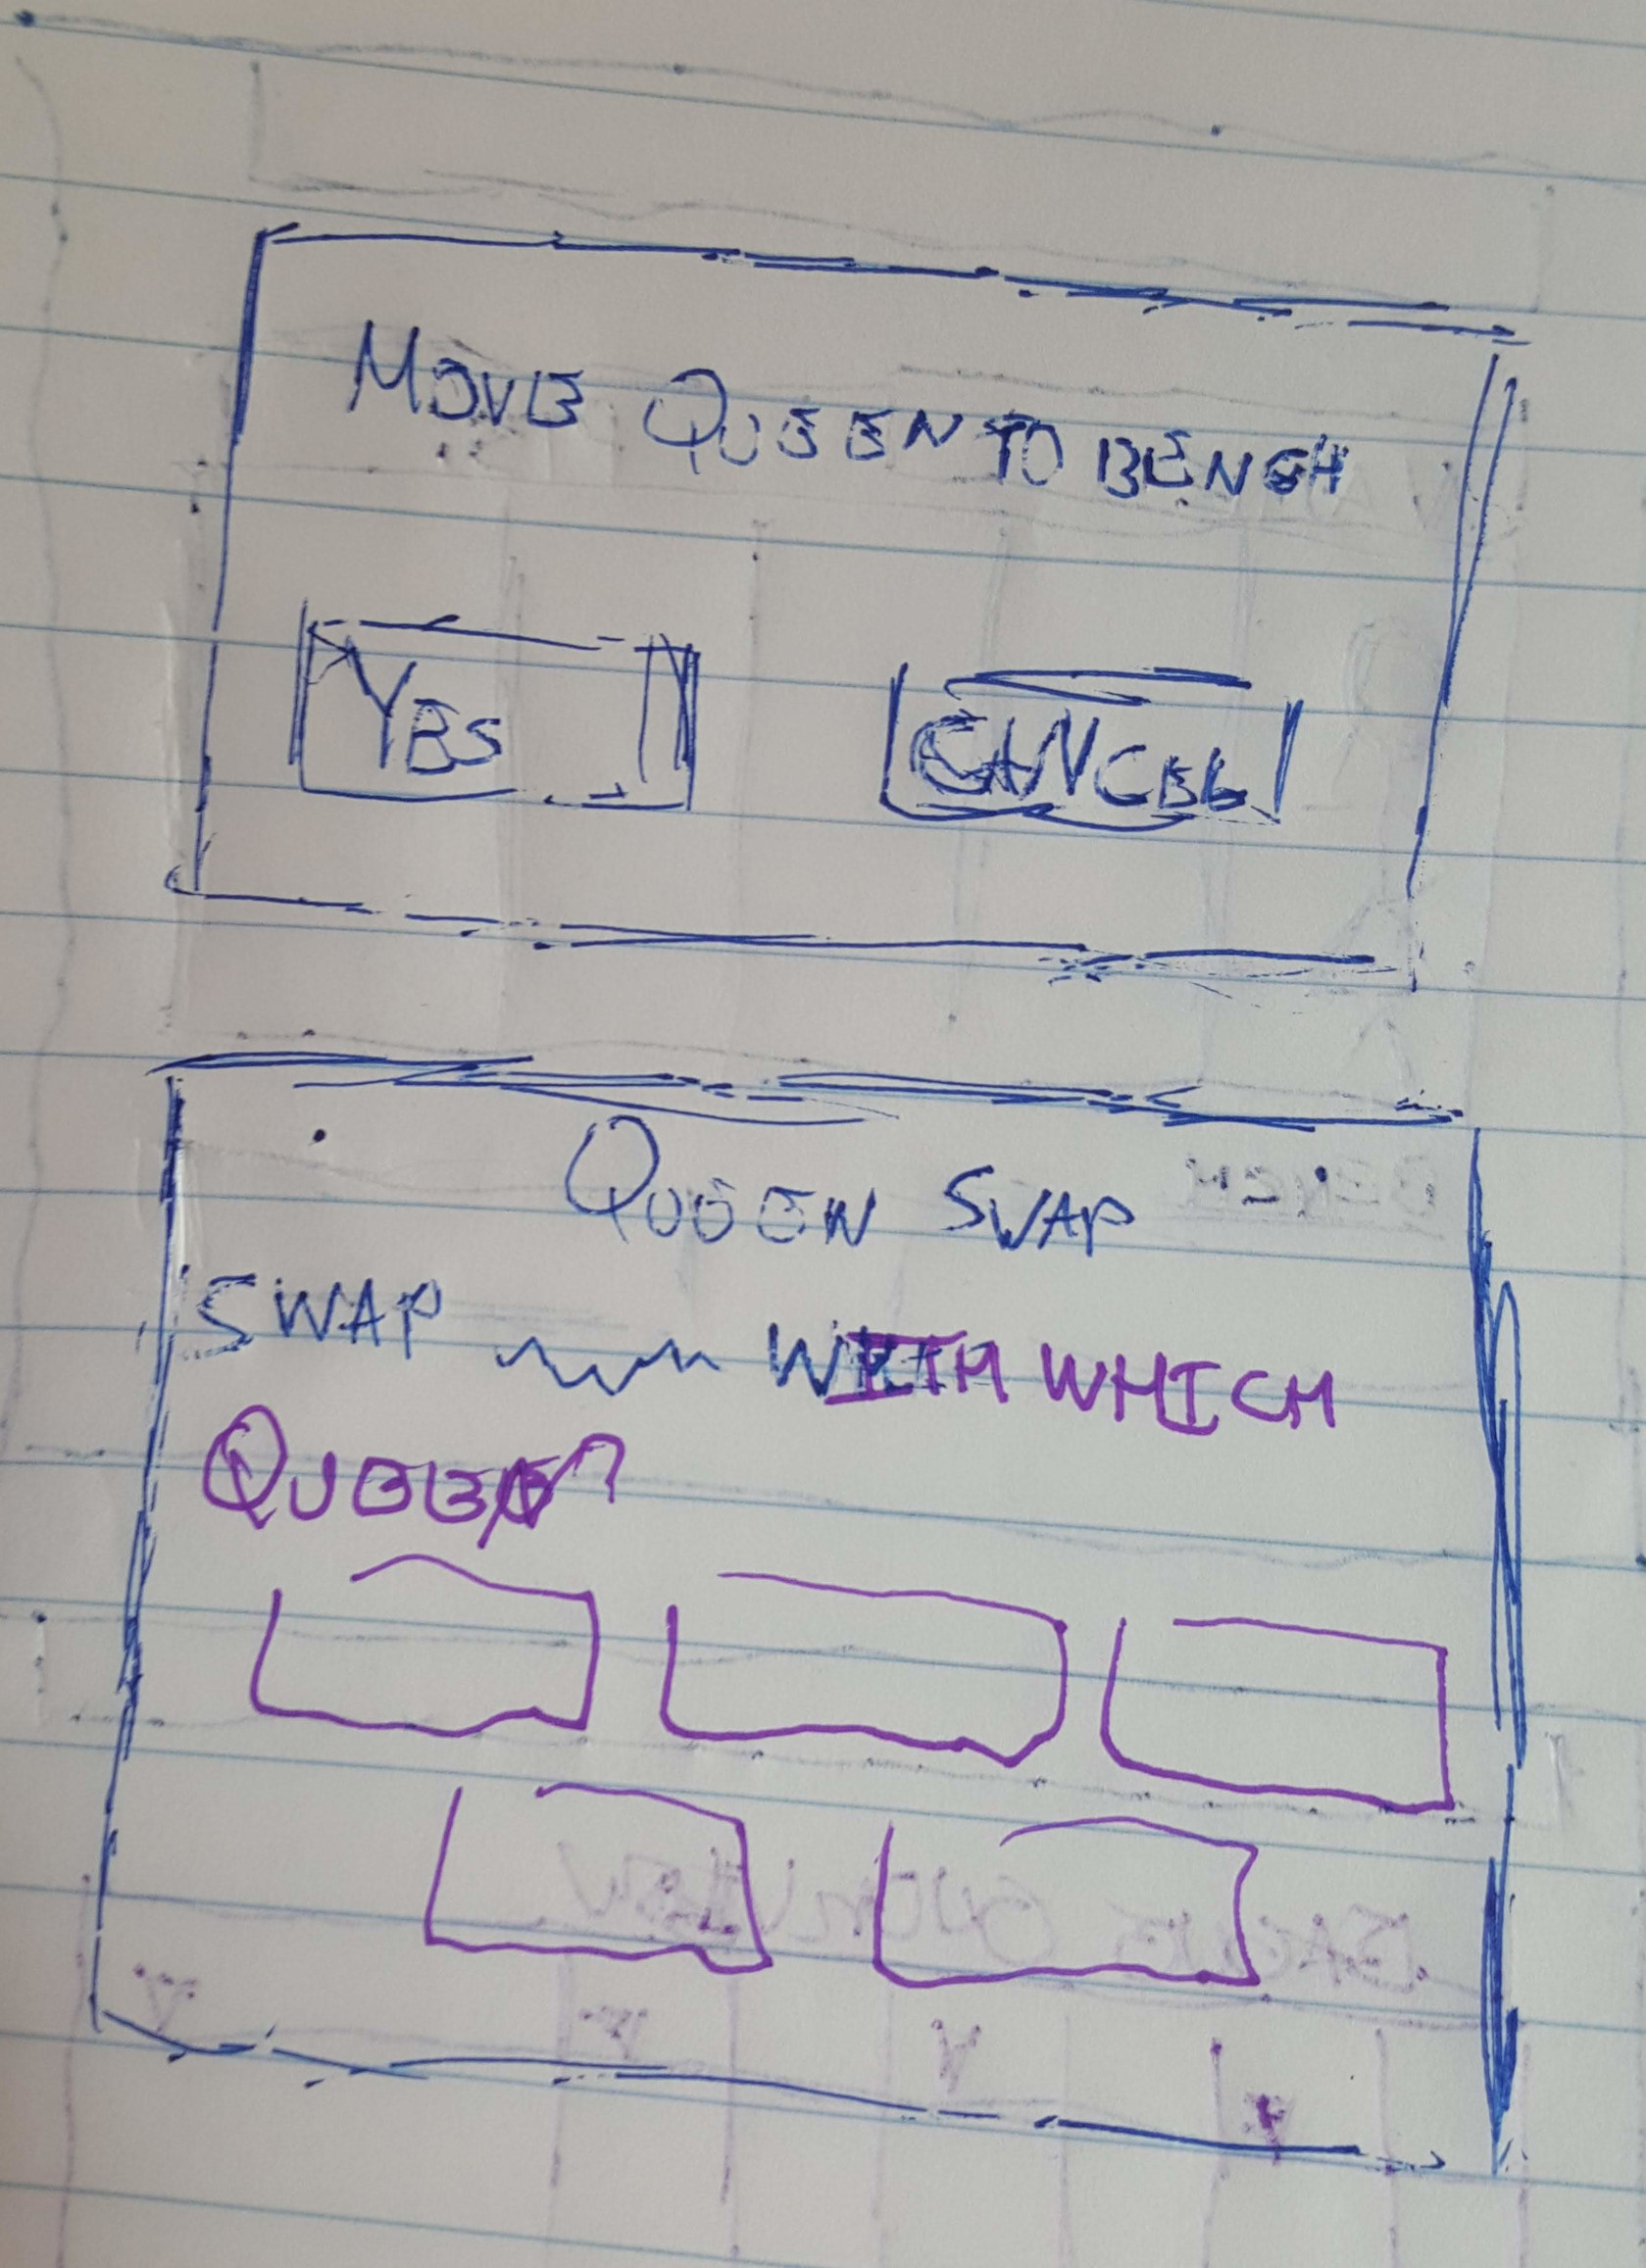 MOVE QUEEN TO BENCH
YES
CANCEL
QUEEN SWAP
SWAP WITH WHICH
QUEEN?